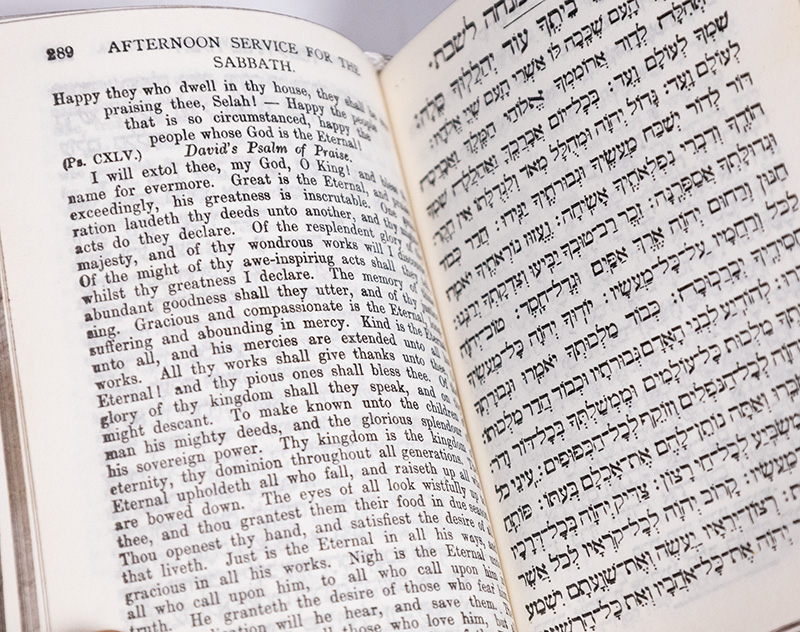 289 AFTERNOON SERVICE FOR THE
SABBATH.
Happy they who dwell in thy house, they shall be
praising thee, Selah! — Happy the people
that is so circumstanced, happy the
people whose God is the Eternal!
(Ps. CXLV.) David's Psalm of Praise.
I will extol thee, my God, O King! and bless
name for evermore. Great is the Eternal, and
exceedingly, his greatness is inscrutable. One
ration laudeth thy deeds unto another, and thy
acts do they declare. Of the resplendent glory of
majesty, and of thy wondrous works will I
Of the might of thy awe-inspiring acts shall they
whilst thy greatness I declare. The memory of
abundant goodness shall they utter, and of thy
sing. Gracious and compassionate is the Eternal,
suffering and abounding in mercy. Kind is the Eternal
unto all, and his mercies are extended unto all
works. All thy works shall give thanks unto thee,
Eternal! and thy pious ones shall bless thee. Of
glory of thy kingdom shall they speak, and on
might descant. To make known unto the children
man his mighty deeds, and the glorious splendour
his sovereign power. Thy kingdom is the kingdom
eternity, thy dominion throughout all generations.
Eternal upholdeth all who fall, and raiseth up all
are bowed down. The eyes of all look wistfully
thee, and thou grantest them their food in due season.
Thou openest thy hand, and satisfiest the desire of
that liveth. Just is the Eternal in all his ways,
gracious in all his works. Nigh is the Eternal
all who call upon him, to all who call upon him
truth. He granteth the desire of those who fear him,
will he hear, and save them.
all those who love him, but
מנחה לשבת.
בֵיתֶךָ עוֹד יְהַלְלוּךָ סֶּלָה:
הָעָם שֶׁכָּכָה לּוֹ אַשְׁרֵי הָעָם שֶׁיְיָ אֱלֹהָיו:
תְּהִלָּה לְדָוִד אֲרוֹמִמְךָ אֱלוֹהַי הַמֶּלֶךְ וַאֲבָרְכָה
שִׁמְךָ לְעוֹלָם וָעֶד: בְּכָל־יוֹם אֲבָרְכֶךָּ וַאֲהַלְלָה שִׁמְךָ
לְעוֹלָם וָעֶד: גָּדוֹל יְהוָֹה וּמְהֻלָּל מְאֹד וְלִגְדֻלָּתוֹ אֵין חֵקֶר:
דּוֹר לְדוֹר יְשַׁבַּח מַעֲשֶׂיךָ וּגְבוּרֹתֶיךָ יַגִּידוּ: הֲדַר כְּבוֹד
הוֹדֶךָ וְדִבְרֵי נִפְלְאֹתֶיךָ אָשִׂיחָה: וֶעֱזוּז נוֹרְאֹתֶיךָ יֹאמֵרוּ
וּגְדֻלָּתְךָ אֲסַפְּרֶנָּה: זֵכֶר רַב־טוּבְךָ יַבִּיעוּ וְצִדְקָתְךָ יְרַנֵּנוּ:
חַנּוּן וְרַחוּם יְהוָֹה אֶרֶךְ אַפַּיִם וּגְדָל־חָסֶד: טוֹב־יְהוָֹה
לַכֹּל וְרַחֲמָיו עַל־כָּל־מַעֲשָׂיו: יוֹדוּךָ יְהוָֹה כָּל־מַעֲשֶׂיךָ
יְבָרְכוּכָה: כְּבוֹד מַלְכוּתְךָ יֹאמֵרוּ וּגְבוּרָתְךָ
לְהוֹדִיעַ לִבְנֵי הָאָדָם גְּבוּרֹתָיו וּכְבוֹד הֲדַר מַלְכוּתוֹ:
מַלְכוּת כָּל־עוֹלָמִים וּמֶמְשַׁלְתְּךָ בְּכָל־דּוֹר וָדֹר:
יְהוָֹה לְכָל־הַנֹּפְלִים וְזוֹקֵף לְכָל־הַכְּפוּפִים: עֵינֵי כֹל
וְאַתָּה נוֹתֵן־לָהֶם אֶת־אָכְלָם בְּעִתּוֹ: פּוֹתֵחַ
וּמַשְׂבִּיעַ לְכָל־חַי רָצוֹן: צַדִּיק יְהוָֹה בְּכָל־דְּרָכָיו
קָרוֹב יְהוָֹה לְכָל־קֹרְאָיו לְכֹל אֲשֶׁר
רְצוֹן־יְרֵאָיו יַעֲשֶׂה וְאֶת־שַׁוְעָתָם יִשְׁמַע
יְהוָֹה אֶת־כָּל־אֹהֲבָיו וְאֵת כָּל־הָרְשָׁעִים